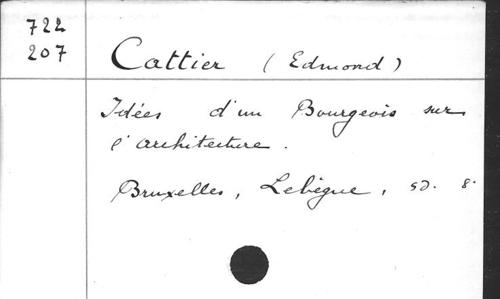 722
207
Cattier (Edmond)
Idées d'un Bourgeois sur
l'architecture.
Bruxelles, Lebègue, sd. 8.